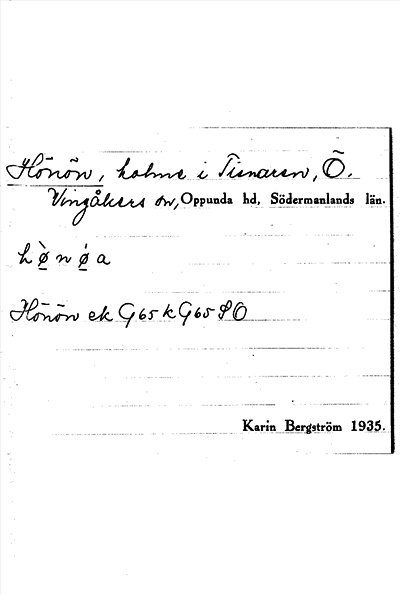 Hönön, holme i Tisnaren, Ö.
Vingåkers sn, Oppunda hd, Södermanlands län.
hø̀nǿa
Hönön ek G65 k G65 SO
Karin Bergström 1935.